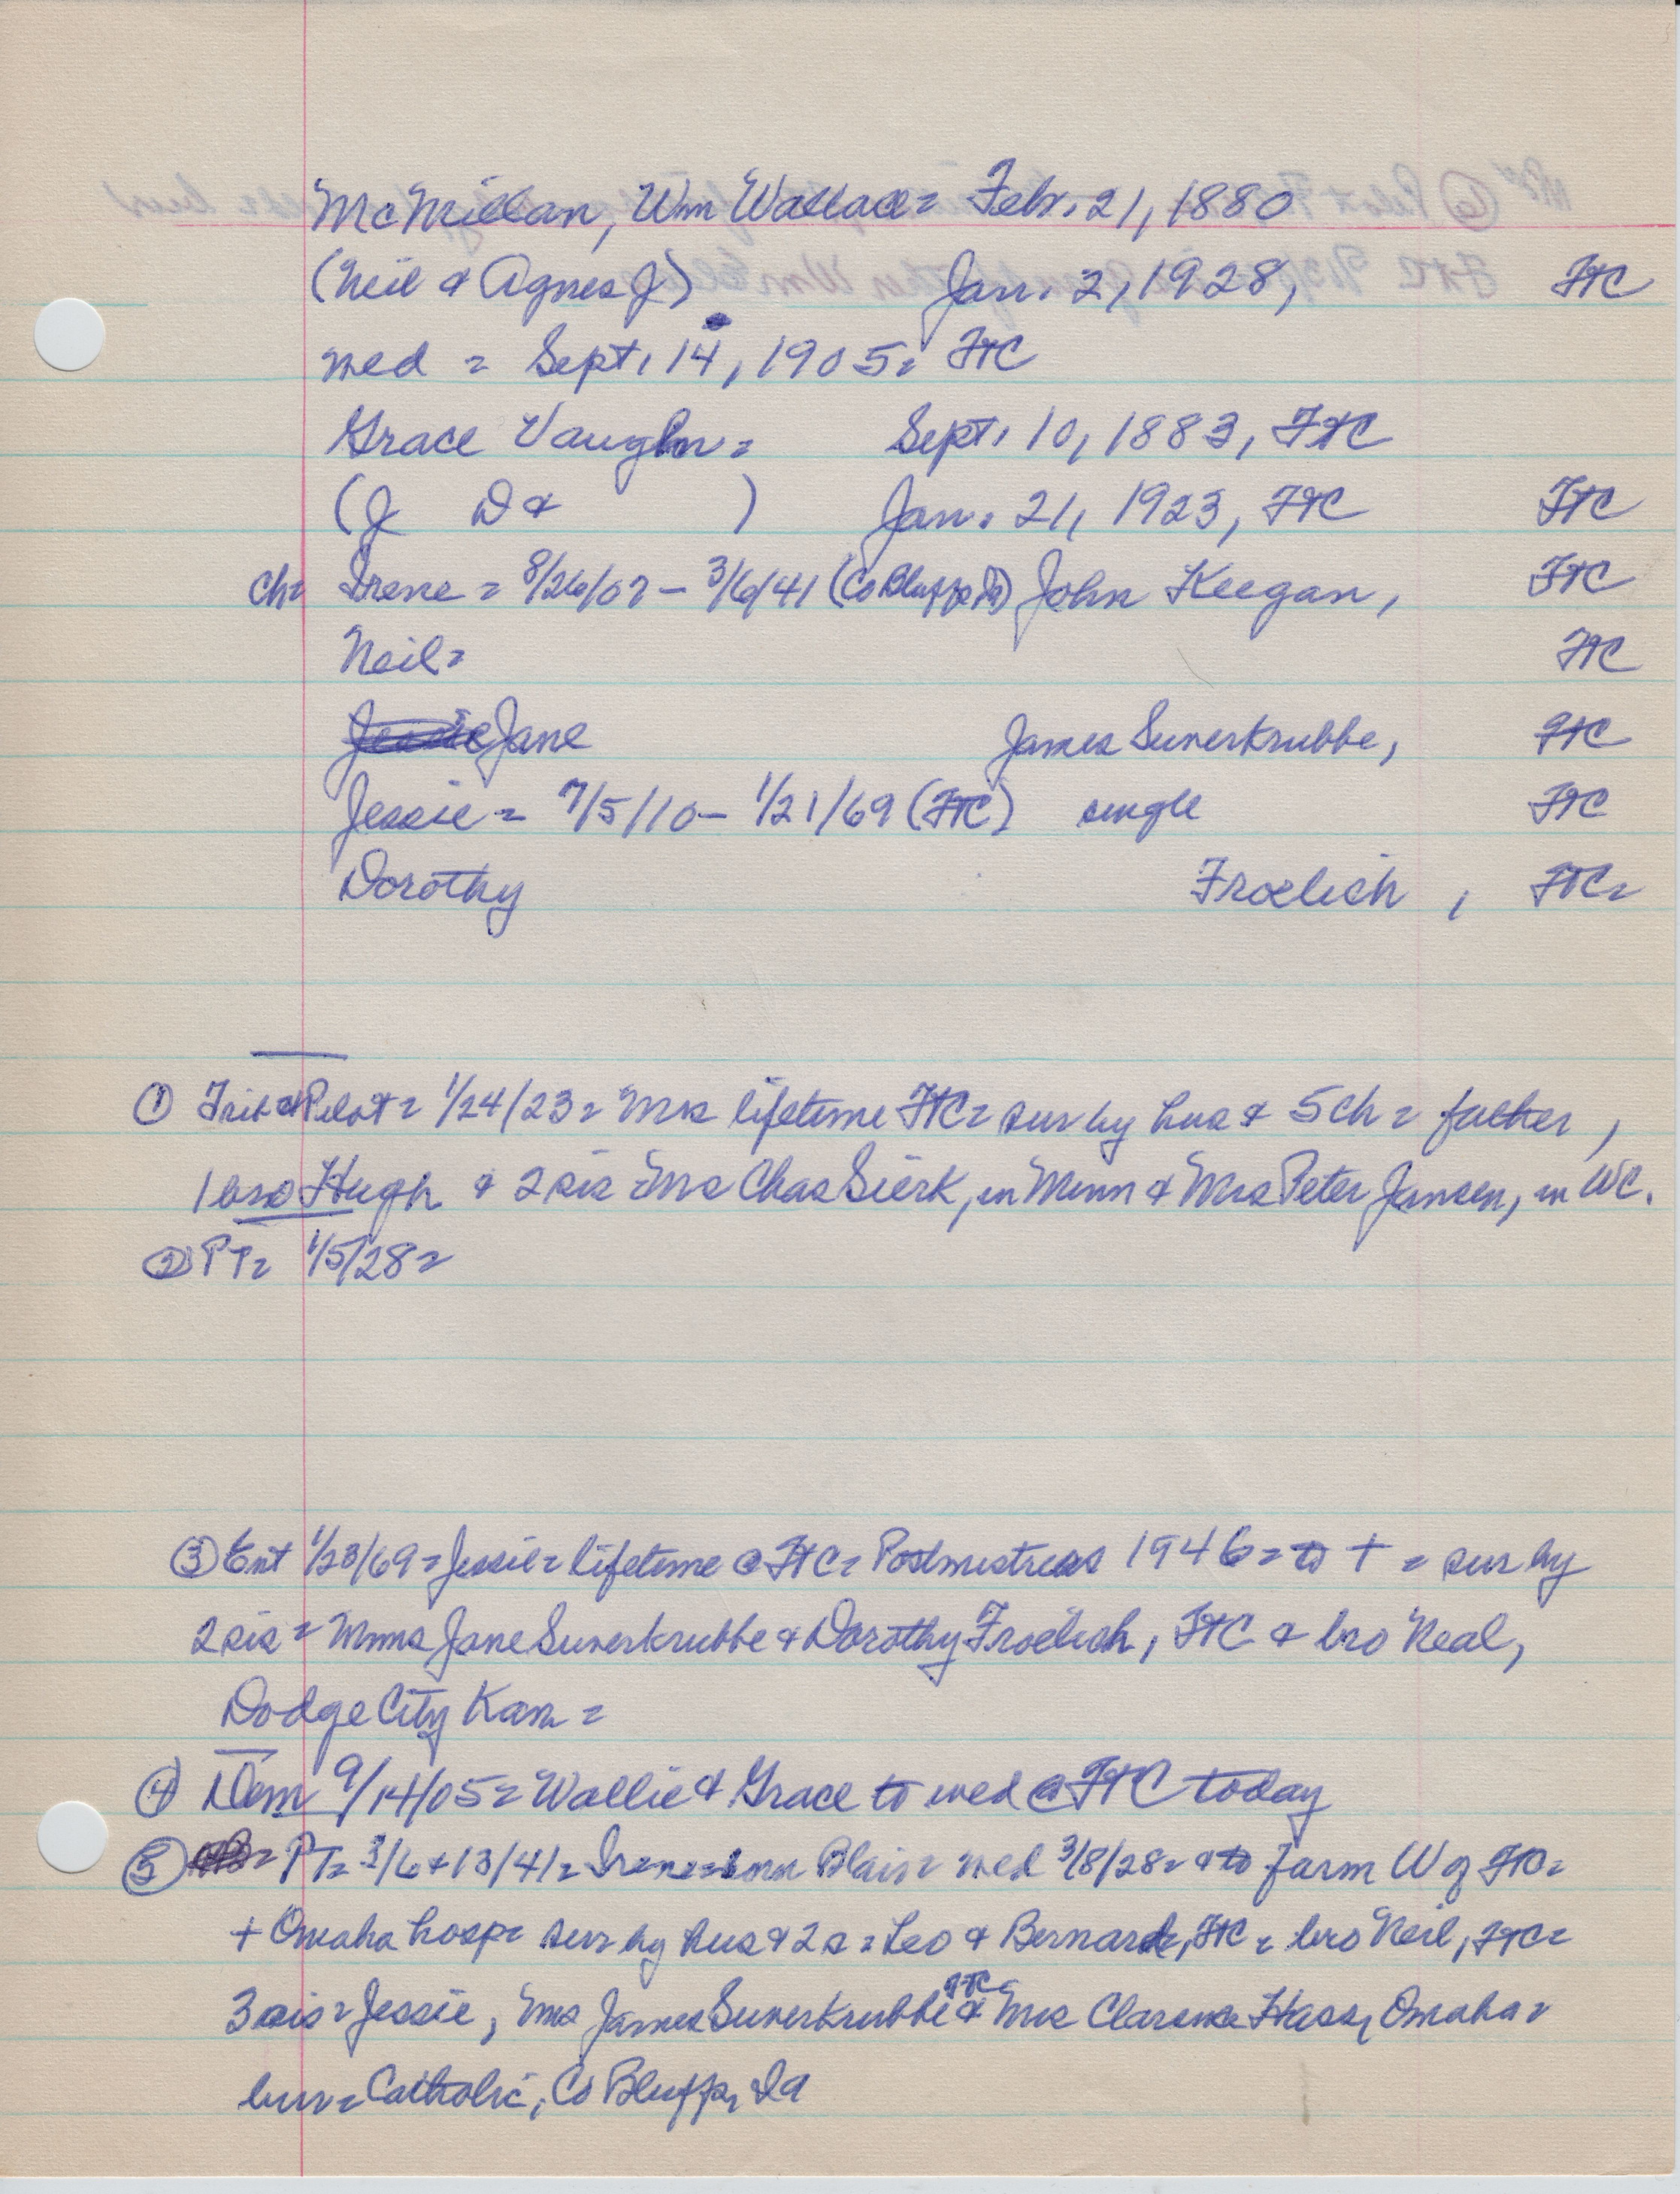 McMillan, Wm Wallace = Febr. 21, 1880
(Neil & Agnes J) Jan. 2, 1928, FtC
wed = Sept. 14, 1905 = FtC
Grace Vaughn = Sept. 10, 1883, FtC
(J D & ) Jan. 21, 1923, FtC FtC
ch = Irene = 8/26/07 - 3/6/41 (Co Bluffs Ia) John Keegan, FtC
Neil = FtC
Jessie Jane James Suverkrubbe, FtC
Jessie = 7/5/10 - 1/21/69 (FtC) single FtC
Dorothy Froelich, FtC =
① Trib & Pilot = 1/24/23 = Mrs lifetime FtC = sur by hus & 5 ch = father,
1 bro Hugh & 2 sis = Mrs Chas Sierk, in Minn & Mrs Peter Jansen, in WC.
② PT = 1/5/28 =
③ Ent 1/23/69 = Jessie = lifetime @ FtC = Postmistress 1946 = to + = sur by
2 sis = Mmes Jane Suverkrubbe & Dorothy Froelich, FtC & bro Neal,
Dodge City Kan =
④ Dem 9/14/05 = Wallie & Grace to wed @ FtC today
⑤ = PT = 3/6 & 13/41 = Irene = born Blair = wed 3/8/28 = & to farm W of FtC =
+ Omaha hosp = sur by hus & 2 s = Leo & Bernard, FtC = bro Neil, FtC =
3 sis = Jessie, Mrs James Suverkrubbe FtC & Mrs Clarence Hass, Omaha =
bur = Catholic, Co Bluffs, Ia